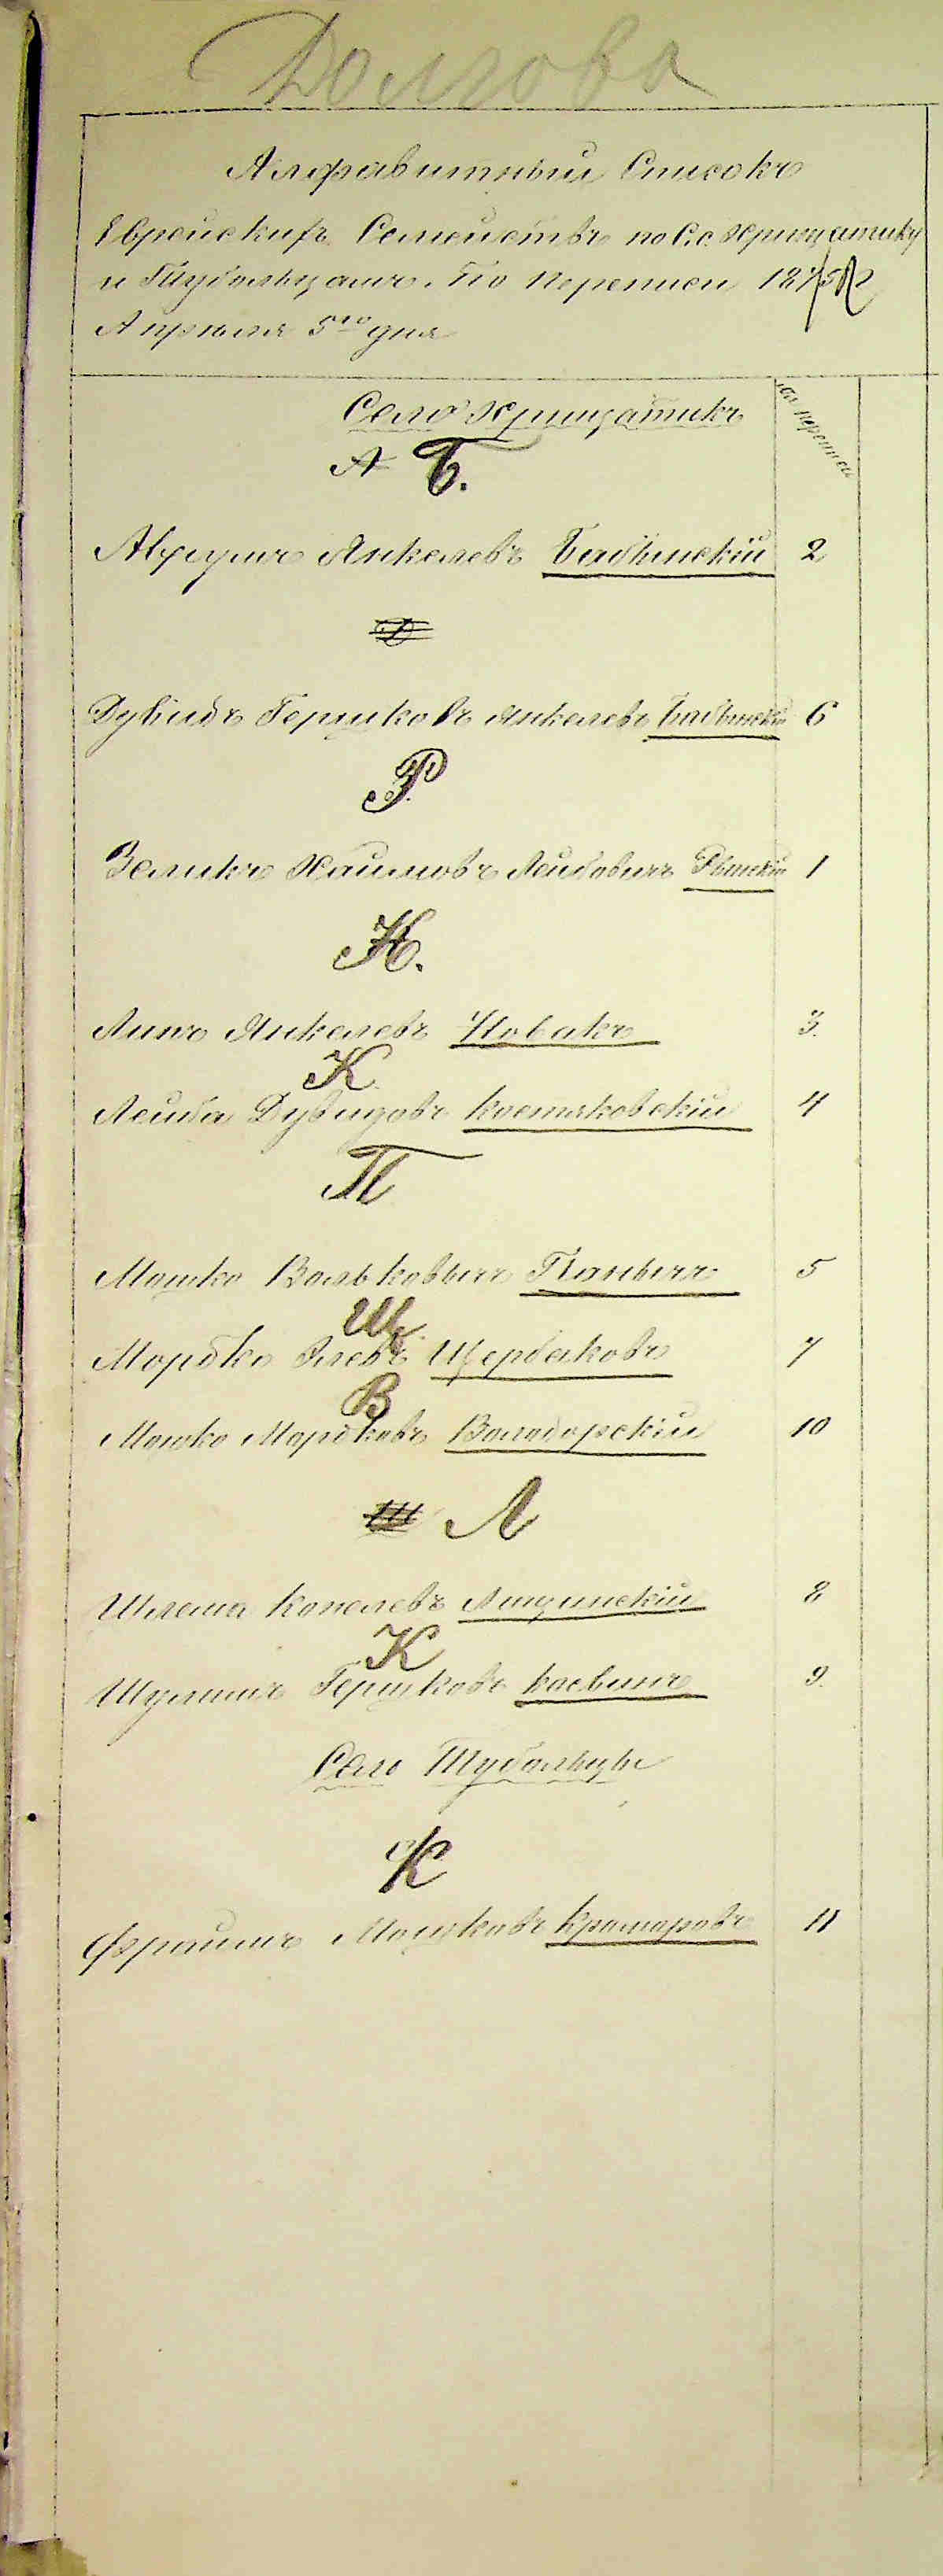 Долгова
Алфавитный Списокъ
Еврейскихъ Семействъ по С.с. Хрищатику
и Тубольцамъ. По переписи 1875 г
Апрѣля 5го дня
Село Хрищатикъ
№ переписи
А Б.
Аврумъ Янкелевъ Бабинскій 2
Дувидъ Гершковъ Янкелевъ Бабинскій 6
З Р.
Зеликъ Хаимовъ Лейбовичъ 1
Н.
Янкелевъ Новакъ 3.
К
Лейба Дувидовъ Костяковскій 4
П
Мошко Вольковычъ 5
Щ
Мордко Щербаковъ 7
В
Мошко Мордковъ Володарскій 10
Ш Л
Шлема Копелевъ Лищинскій 8
К
Шулимъ Гершковъ 9.
Село Тубольцы
К
Фраимъ Мошковъ Крамаровъ 11